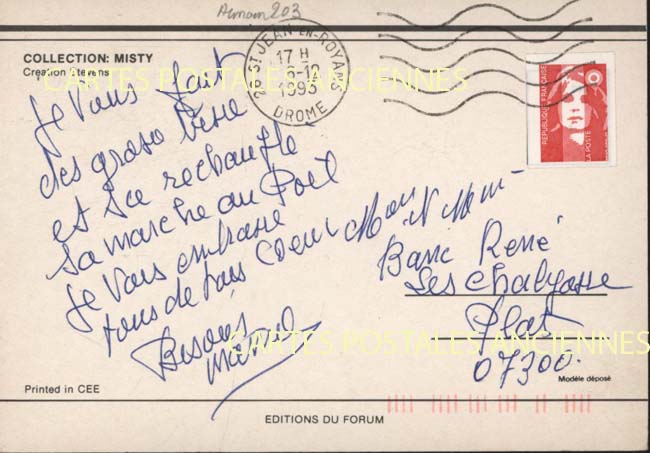 Armain 203
COLLECTION: MISTY
Creation Stevens
26 ST JEAN-EN-ROYANS
17 H
1993
DROME
REPUBLIQUE FRANÇAISE
LA POSTE
CARTES POSTALES ANCIENNES
Je Vous fait
des gross bise
est se rechauffe
sa marche au Poil
je Vous embrasse
tous de tous Coeur
Bisous
Marcel
Mon
Barre René
Les Chalyasse
Plat
07300.
CARTES POSTALES ANCIENNES
Printed in CEE
Modèle déposé
EDITIONS DU FORUM